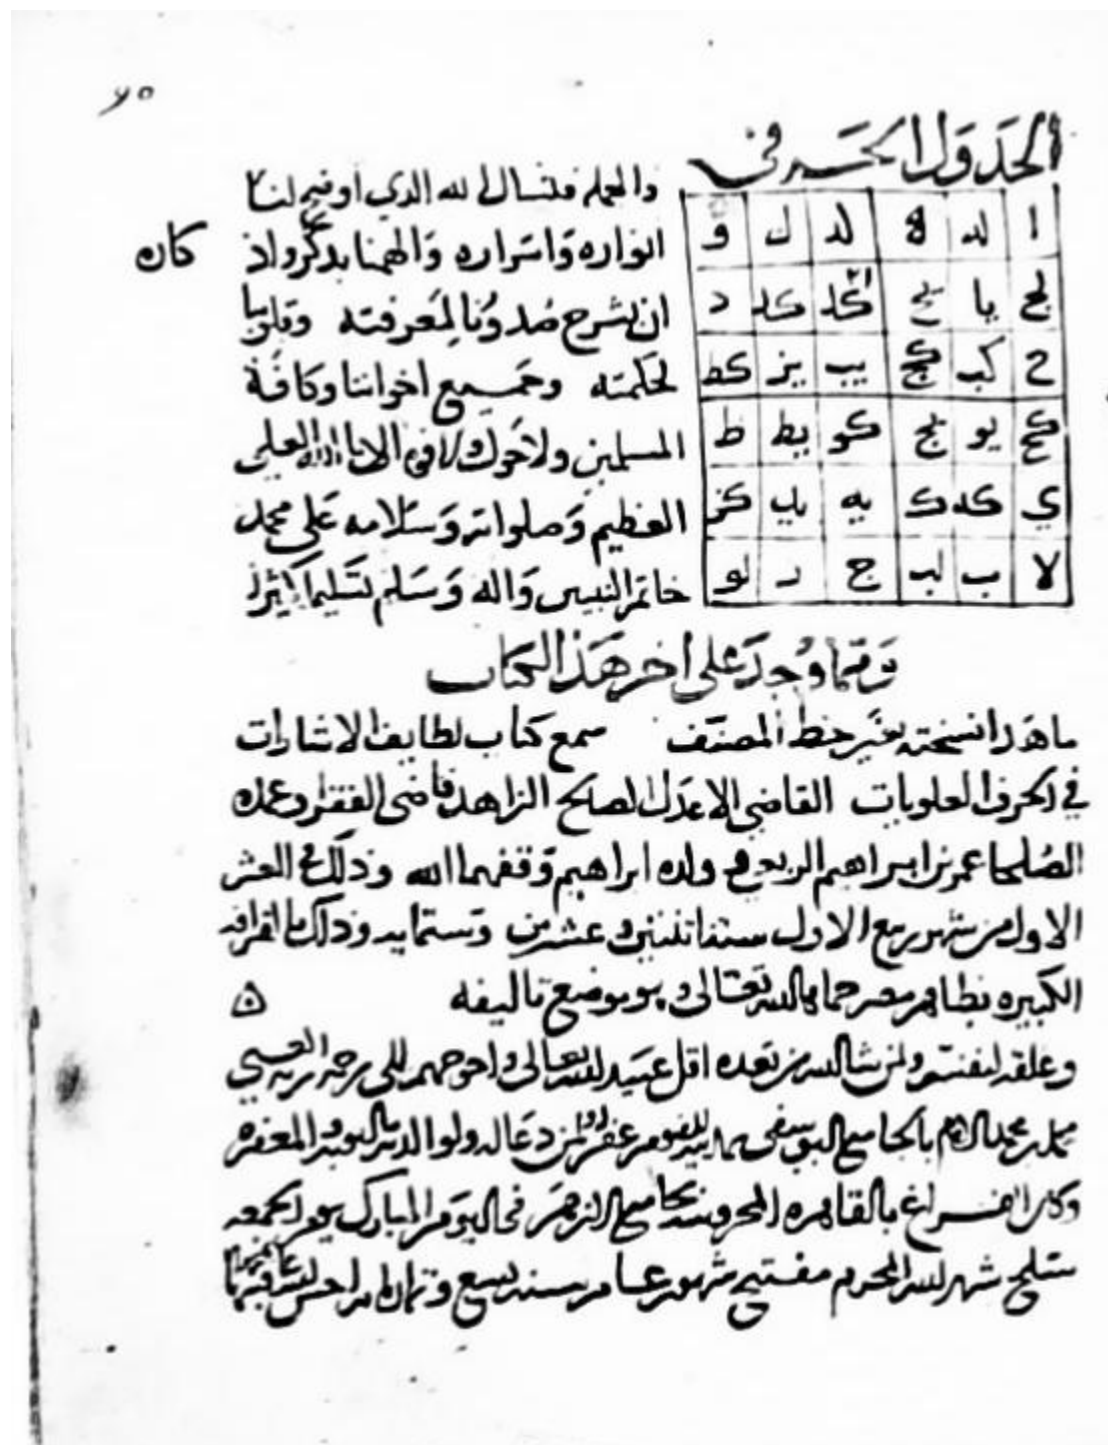 ٦٥
الجدول الحرفي
ا | له | ه | لد | ل | و
لج | يا | | كا | كد | د
ح | كب | كج | يب | يز | كط
كح | يو | يج | كو | يط | ط
ي | كه | ك | يه | يد | كز
لا | ب | لب | ج | | لو
والعمله فنسال الله الذي اوضح لنا
انواره واسراره والهمنا بذكره اذ كان
ان يشرح صدورنا لمعرفته وقلوبنا
لحكمته وجميع اخواننا وكافة
المسلمين ولا حول ولا قوة الا بالله العلي
العظيم وصلواته وسلامه على محمد
خاتم النبيين واله وسلم تسليما كثيرا
ومما وجد على اخر هذا الكتاب
ما هذا نسخته بغير خط المصنف سمع كتاب لطايف الاشارات
في الحرف العلويات القاضي الاعدل الصالح الزاهد قاضي الفقرا وعمدة
الصلحا عمر بن ابراهيم الربعي وولده ابراهيم وفقهما الله وذلك في العشر
الاول من شهر ربيع الاول سنة اثنتين وعشرين وستمايه وذلك بالقرافه
الكبيره بظاهر مصر حماها الله تعالى وهو موضع تاليفه
وعلقه لنفسه ولمن شا الله من بعده اقل عبيد الله تعالى واحوجهم الى رحمة ربه
محمد بالجامع اليوسفي غفر الله لمن دعا له ولوالديه بالتوبه والمغفره
وكان الفراغ بالقاهره المحروسه بجامع الازهر في اليوم المبارك يوم الجمعه
سلخ شهر الله المحرم مفتتح شهور عام سنه تسع وثمان ماية احسن الله